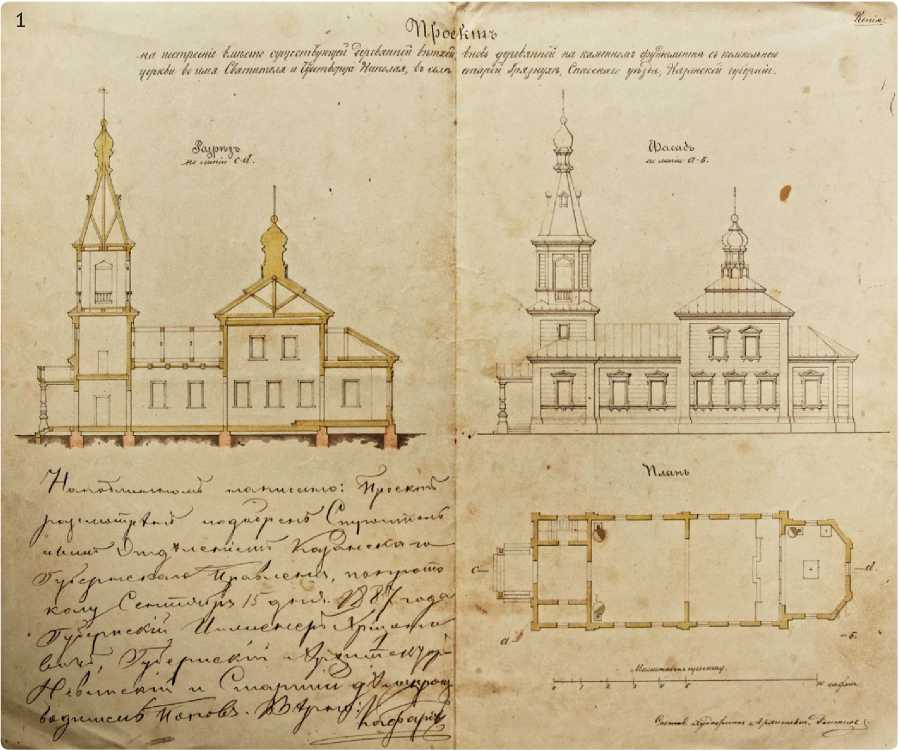 1
Копія.
Проектъ
на построеніе вмѣсто существующей деревянной ветхой, вновь деревянной на каменномъ фундаментѣ съ колокольнею
церкви во имя Святителя и Чудотворца Николая, въ селѣ Старой Грязнухѣ, Спасскаго уѣзда, Казанской губерніи.
Разрѣзъ
по линіи c-d.
Фасадъ
по линіи a-б.
На подлинномъ написано: Проектъ
разсмотрѣнъ и одобренъ Строитель
нымъ Отдѣленіемъ Казанскаго
Губернскаго Правленія, по прото
колу Сентября 15 дня 1887 года
Губернскій Инженеръ
Губернскій Архитекторъ
и Старшій дѣлопроиз
водитель Поповъ. Вѣрно:
Планъ
c
d
a
б.
Масштабъ
10 сажен
Составъ